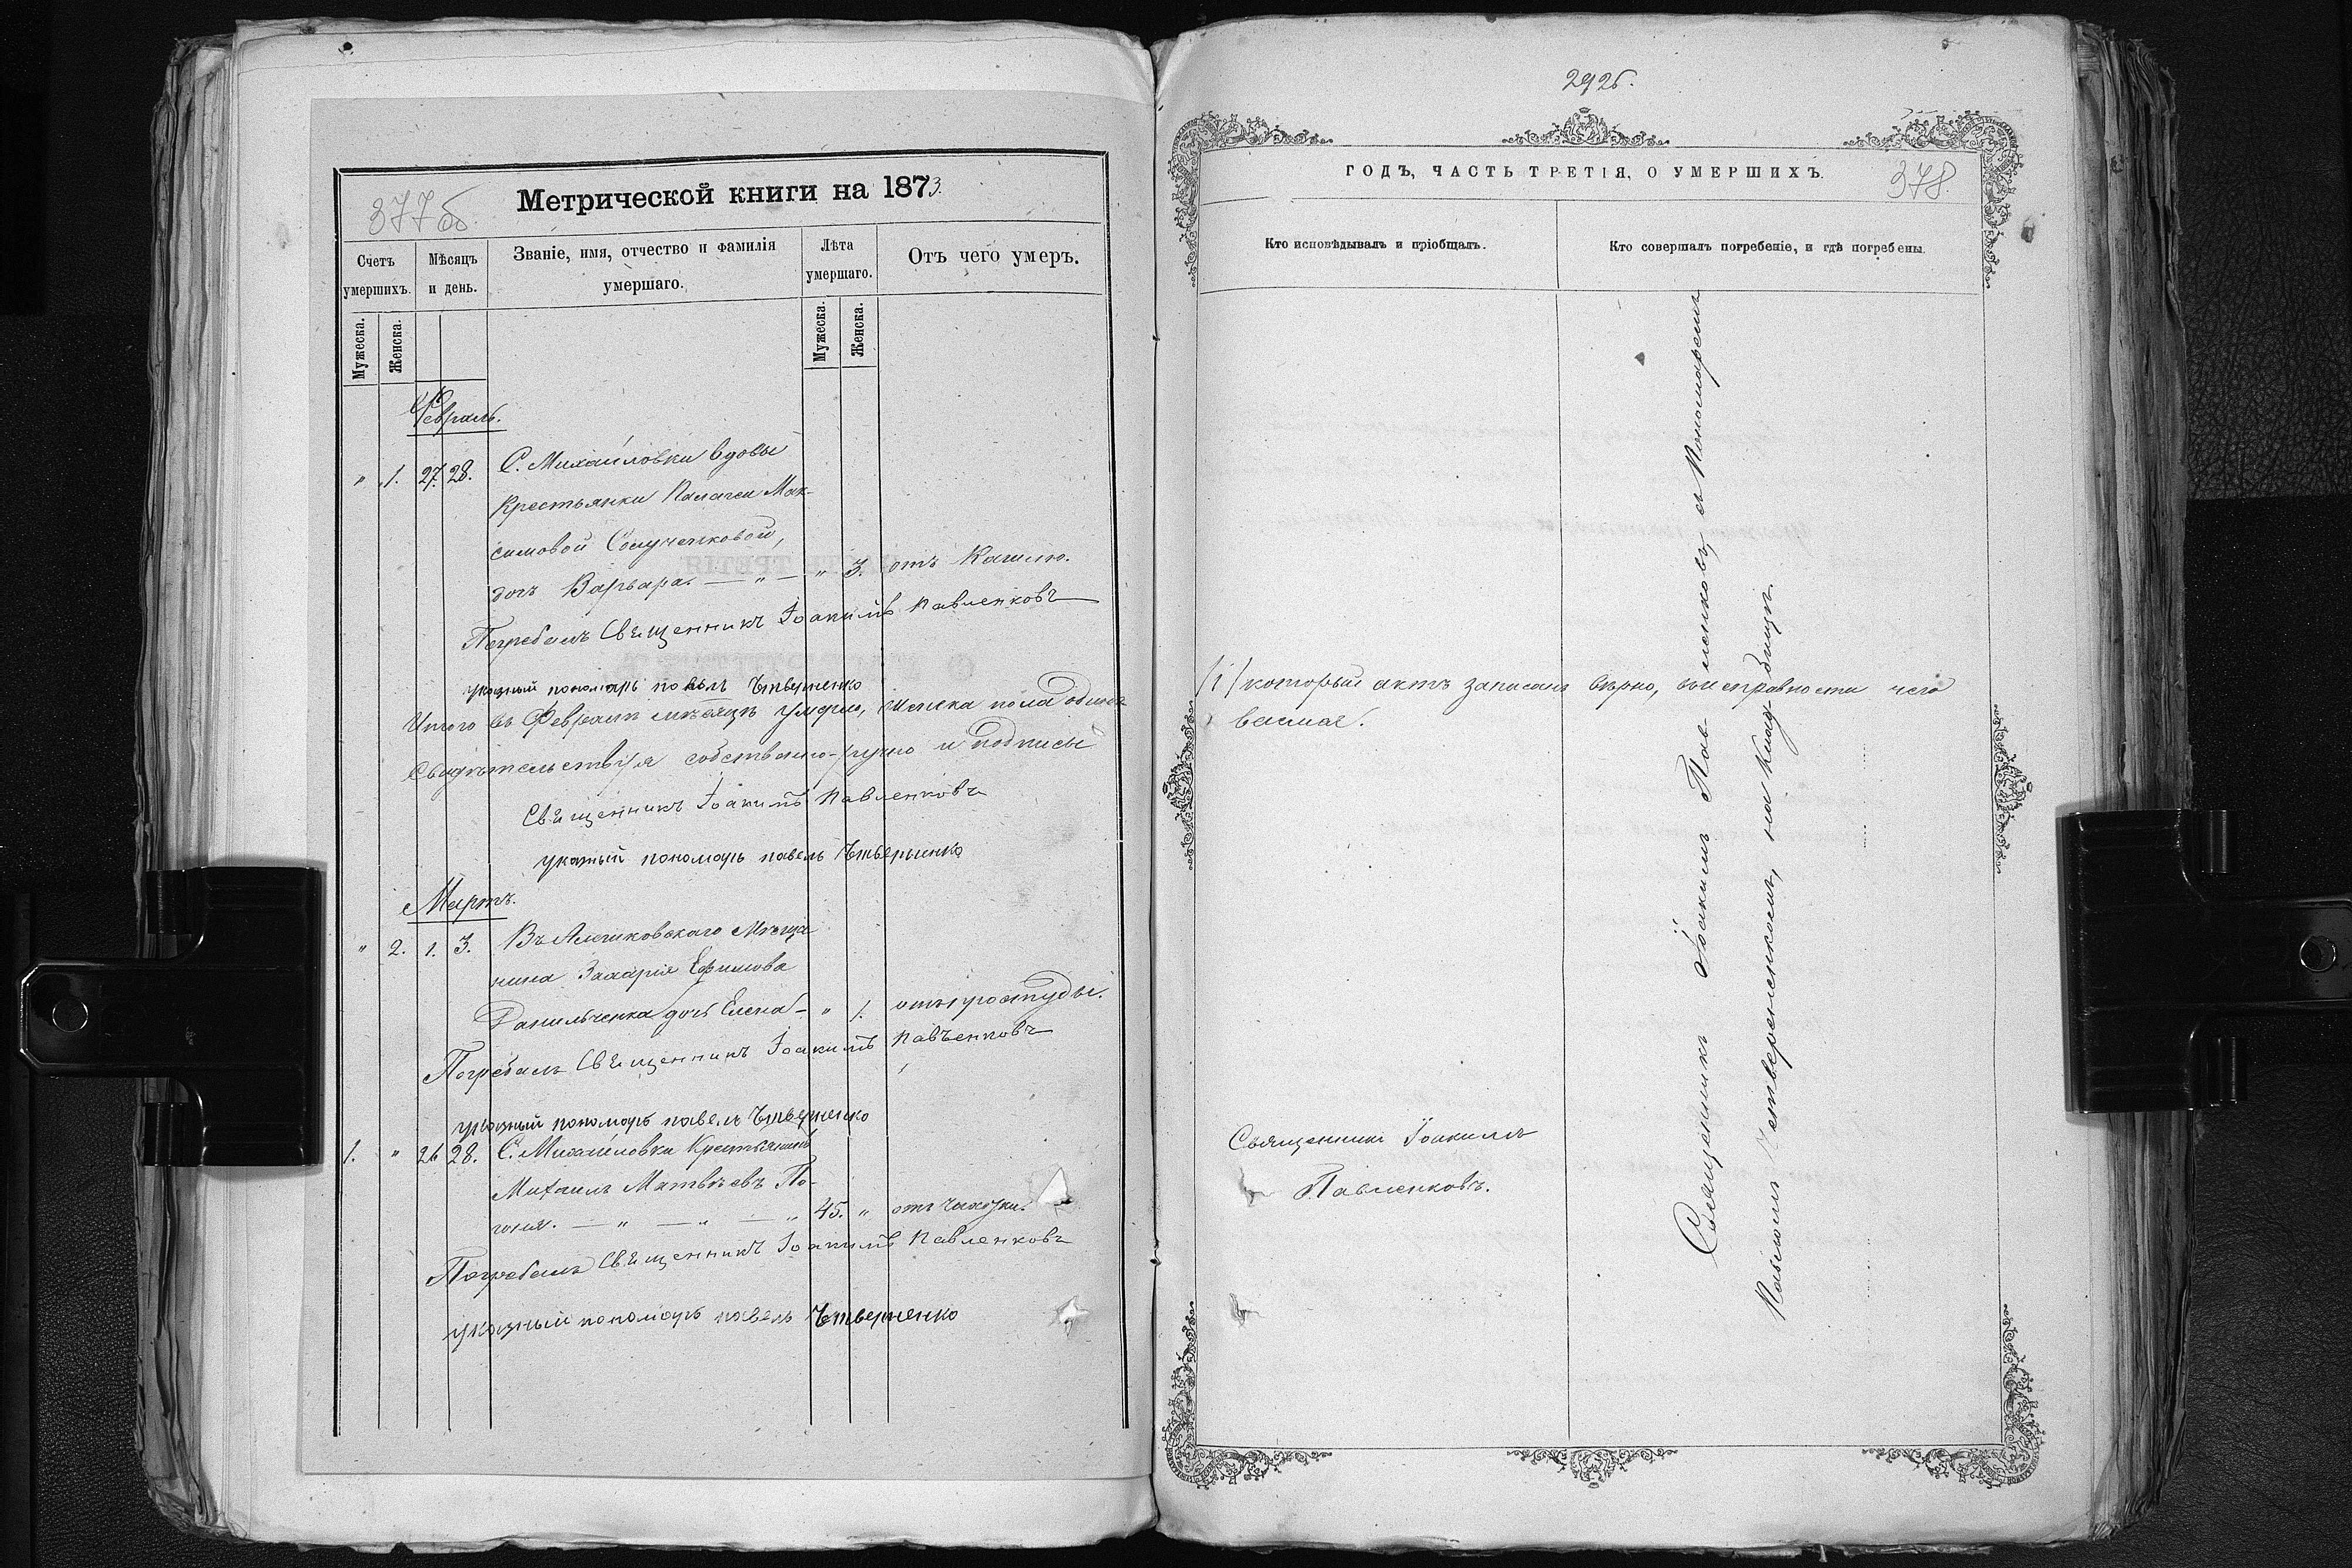 377 об.
Метрической книги на 1873.
Счетъ умершихъ.
Мѣсяцъ и день.
Званіе, имя, отчество и фамилія умершаго.
Лѣта умершаго.
Отъ чего умеръ.
Мужеска.
Женска.
Мужеска.
Женска.
Февраль.
" 1. 27. 28. С. Михайловки вдовы
Крестьянки Палагеи Мак-
симовой
дочь Варвара. — " — " 3. отъ Кашлю.
Погребалъ Священникъ Іоакимъ Павленковъ
указный пономарь павелъ Четверненко
Итого въ Февралѣ мѣсяцѣ умерло, женска пола одна
собственно-ручно и подписы
Священникъ Іоакимъ Павленковъ
указный пономарь павелъ Четверненко
Мартъ.
" 2. 1. 3. Мѣща
нина Захарія Ефимова
Данильченка дочь Елена — " 1. отъ простуды.
Погребалъ Священникъ Іоакимъ Павъенковъ
указный пономарь павелъ Четверненко
1. " 26 28. С. Михайловки Крестьянинъ
Михаилъ Матвѣевъ По-
— " — " — " 45. " отъ чахотки.
Погребалъ Священникъ Іоакимъ Павленковъ
указный пономарь павелъ Четверненко
292б.
ГОДЪ, ЧАСТЬ ТРЕТІЯ, О УМЕРШИХЪ.
378.
Кто исповѣдывалъ и пріобщалъ.
Кто совершалъ погребеніе, и гдѣ погребены.
/1/ который актъ записанъ вѣрно, въ исправности чего
Священникъ Іоакимъ
Павленковъ.
Священникъ Іоакимъ Павленковъ, съ Пономаремъ
Павломъ Четверненкомъ, на кладбищѣ.